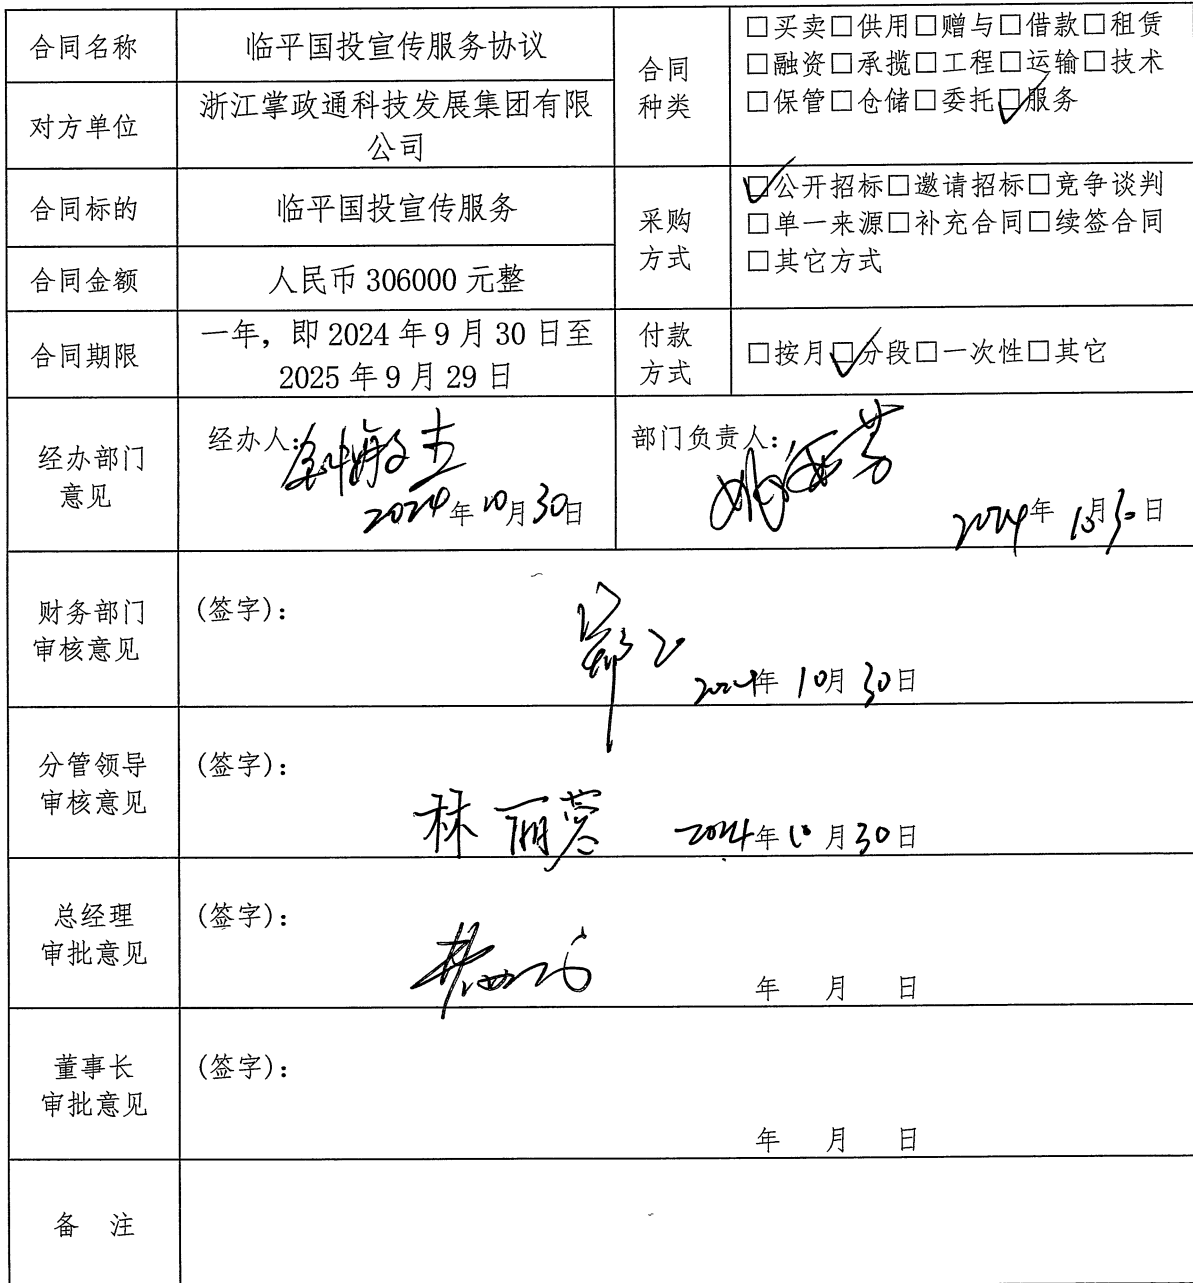 合同名称
临平国投宣传服务协议
合同
种类
□买卖□供用□赠与□借款□租赁
□融资□承揽□工程□运输□技术
□保管□仓储□委托☑服务
对方单位
浙江掌政通科技发展集团有限
公司
合同标的
临平国投宣传服务
采购
方式
☑公开招标□邀请招标□竞争谈判
□单一来源□补充合同□续签合同
□其它方式
合同金额
人民币 306000 元整
合同期限
一年，即 2024 年 9 月 30 日至
2025 年 9 月 29 日
付款
方式
□按月☑分段□一次性□其它
经办部门
意见
经办人:
2024年10月30日
部门负责人:
2024年10月30日
财务部门
审核意见
(签字):
2024年10月30日
分管领导
审核意见
(签字):
林丽蓉 2024年10月30日
总经理
审批意见
(签字):
年 月 日
董事长
审批意见
(签字):
年 月 日
备 注